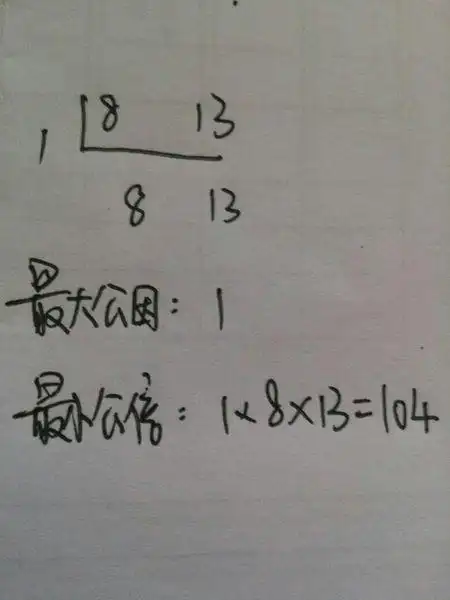 1 8 13
8 13
最大公因：1
最小公倍：1×8×13=104